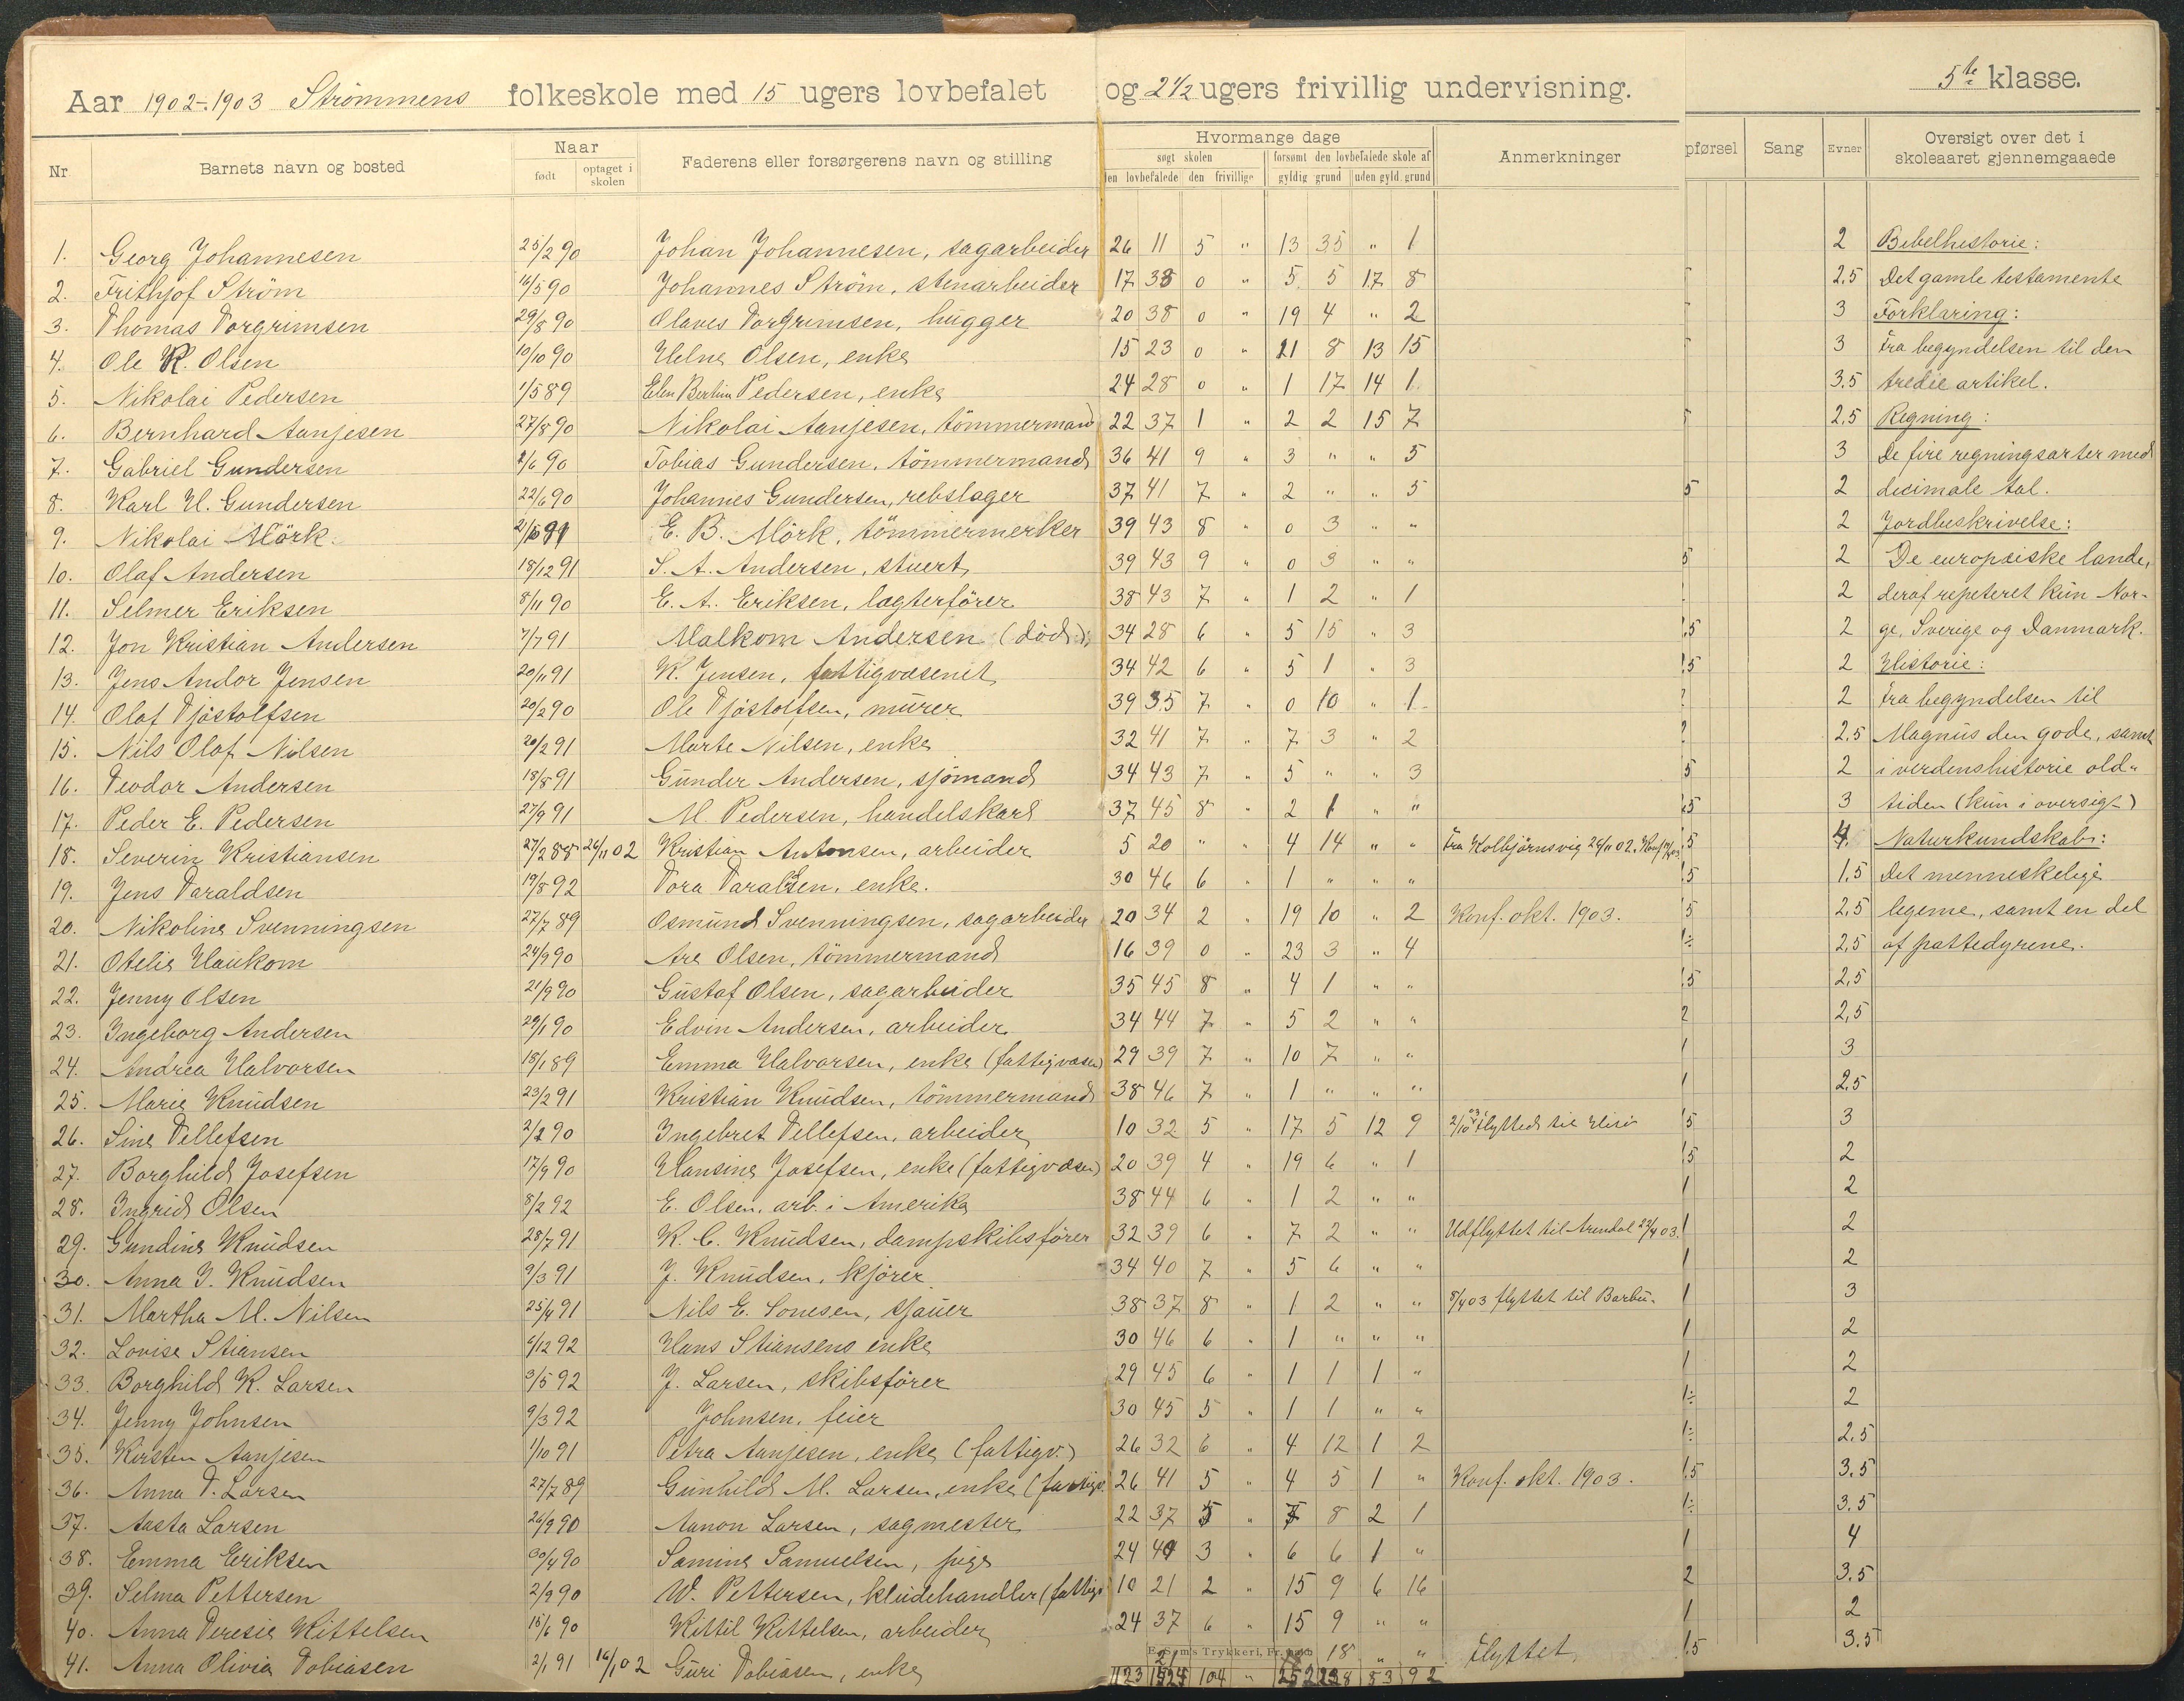 Aar 1902-1903 Strömmens folkeskole med 15 ugers lovbefalet og 2½ ugers frivillig undervisning. 5te klasse.
Nr. Barnets navn og bosted Naar født optaget i skolen Faderens eller forsørgerens navn og stilling Hvormange dage søgt skolen den lovbefalede den frivillige forsømt den lovbefalede skole af gyldig grund uden gyld. grund Anmerkninger pførsel Sang Evner Oversigt over det i skoleaaret gjennemgaaede
1. Georg Johannesen 25/2 90 Johan Johannesen, sagarbeider 26 11 5 " 13 35 " 1 2 Bibelhistorie:
2. Frithjof Ström 16/5 90 Johannes Ström, stenarbeider 17 38 0 " 5 5 17 8 2,5 Det gamle testamente
3. Thomas Torgrimsen 29/8 90 Olaves Torgrimsen, hugger 20 38 0 " 19 4 " 2 3 Forklaring:
4. Ole K. Olsen 10/10 90 Helne Olsen, enke 15 23 0 " 21 8 13 15 3 Fra begyndelsen til den
5. Nikolai Pedersen 1/5 89 Elen Bertin Pedersen, enke 24 28 0 " 1 17 14 1 3.5 tredie artikel.
6. Bernhard Aanjesen 27/8 90 Nikolai Aanjesen, tömmermand 22 37 1 " 2 2 15 7 2,5 Regning:
7. Gabriel Gundersen 2/6 90 Tobias Gundersen, tömmermand 36 41 9 " 3 " " 5 3 De fire regningsarter med
8. Karl H. Gundersen 22/6 90 Johannes Gundersen, rebslager 37 41 7 " 2 " " 5 5 2 decimale tal.
9. Nikolai Mörk. E. B. Mörk, tömmermerker 39 43 8 " 0 3 " " 2 Jordbeskrivelse:
10. Olaf Andersen 18/12 91 S. A. Andersen, stuert 39 43 9 " 0 3 " " 5 2 De europæiske lande,
11. Selmer Eriksen 8/11 90 E. A. Eriksen, lagterförer 38 43 7 " 1 2 " 1 2 deraf repeteret kun Nor-
12. Jon Kristian Andersen 7/7 91 Malkom Andersen (död) 34 28 6 " 5 15 " 3 ,5 2 ge, Sverige og Danmark.
13. Jens Andor Jensen 20/11 91 K. Jensen, fattigvæsenet 34 42 6 " 5 1 " 3 ,5 2 Historie:
14. Olaf Tjöstolfsen 20/2 90 Ole Tjöstolfsen, murer 39 35 7 " 0 10 " 1 2 2 Fra begyndelsen til
15. Nils Olaf Nilsen 20/2 91 Marte Nilsen, enke 32 41 7 " 7 3 " 2 2 2.5 Magnus den gode, samt
16. Teodor Andersen 18/8 91 Gunder Andersen, sjömand 34 43 7 " 5 " " 3 5 2 i verdenshistorie old-
17. Peder E. Pedersen 27/9 91 M. Pedersen, handelskarl 37 45 8 " 2 1 " " ,5 3 tiden (kun i oversigt)
18. Severin Kristiansen 27/2 88 26/11 02 Kristian Antonsen, arbeider 5 20 " " 4 14 " " Fra Kolbjörnsvig 26/11 02. ,5 4. Naturkundskab:
19. Jens Taraldsen 19/8 92 Tora Taraldsen, enke. 30 46 6 " 1 " " " ,5 1,5 Det menneskelige
20. Nikoline Svenningsen 27/7 89 Osmund Svenningsen, sagarbeider 20 34 2 " 19 10 " 2 Konf. okt. 1903. 5 2,5 legeme, samt en del
21. Otelie Haukom 24/9 90 Are Olsen, tömmermand 16 39 0 " 23 3 " 4 1÷ 2,5 af pattedyrene.
22. Jenny Olsen 21/9 90 Gustaf Olsen, sagarbeider 35 45 8 " 4 1 " " ,5 2,5
23. Ingeborg Andersen 29/1 90 Edvin Andersen, arbeider 34 44 7 " 5 2 " " 2 2,5
24. Andrea Halvorsen 18/1 89 Emma Halvorsen, enke (fattigvæsen) 29 39 7 " 10 7 " " 1 3
25. Marie Knudsen 23/2 91 Kristian Knudsen, tömmermand 38 46 7 " 1 " " " 1 2,5
26. Sine Tellefsen 2/2 90 Ingebret Tellefsen, arbeider 10 32 5 " 17 5 12 9 2/10 03 flyttede til Hisö 5 3
27. Borghild Josefsen 17/9 90 Hansine Josefsen, enke (fattigvæsen) 20 39 4 " 19 6 " 1 5 2
28. Ingrid Olsen 8/2 92 E. Olsen, arb. i Amerika 38 44 6 " 1 2 " " 1 2
29. Gundine Knudsen 28/7 91 K. C. Knudsen, dampskibsförer 32 39 6 " 7 2 " " Udflyttet til Arendal 23/4 03. 1 2
30. Anna I. Knudsen 9/3 91 J. Knudsen, kjörer 34 40 7 " 5 6 " " 1 2
31. Martha M. Nilsen 25/4 91 Nils E. Sonesen, sjauer 38 37 8 " 1 2 " " 8/4 03 flyttet til Barbu. 1 3
32. Lovise Stiansen 6/12 92 Hans Stiansens enke 30 46 6 " 1 " " " 1 2
33. Borghild K. Larsen 3/5 92 J. Larsen, skibsförer 29 45 6 " 1 1 1 " 1 2
34. Jenny Johnsen 9/3 92 Johnsen, feier 30 45 5 " 1 1 " " 1÷ 2
35. Kirsten Aanjesen 1/10 91 Petra Aanjesen, enke (fattigv.) 26 32 6 " 4 12 1 2 1÷ 2.5
36. Anna T. Larsen 27/7 89 Gunhild M. Larsen, enke (fattigv. 26 41 5 " 4 5 1 " Konf. okt. 1903. ,5 3.5
37. Aasta Larsen 26/9 90 Aanon Larsen, sagmester 22 37 5 " 7 8 2 1 1÷ 3.5
38. Emma Eriksen 30/4 90 Samine Samuelsen, pige 24 40 3 " 6 6 1 " 1 4
39. Selma Pettersen 2/9 90 W. Pettersen, kludehandler (fattigv 10 21 2 " 15 9 6 16 2 3.5
40. Anna Teresie Kittelsen 15/6 90 Kittil Kittelsen, arbeider 24 37 6 " 15 9 " " 1 2
41. Anna Olivia Tobiasen 2/1 91 16/1 02 Guri Tobiasen, enke 21 18 " " Flyttet ,5 3.5
E. Sem's Trykkeri, Fr.hald.
1123 104 " 252 53 92